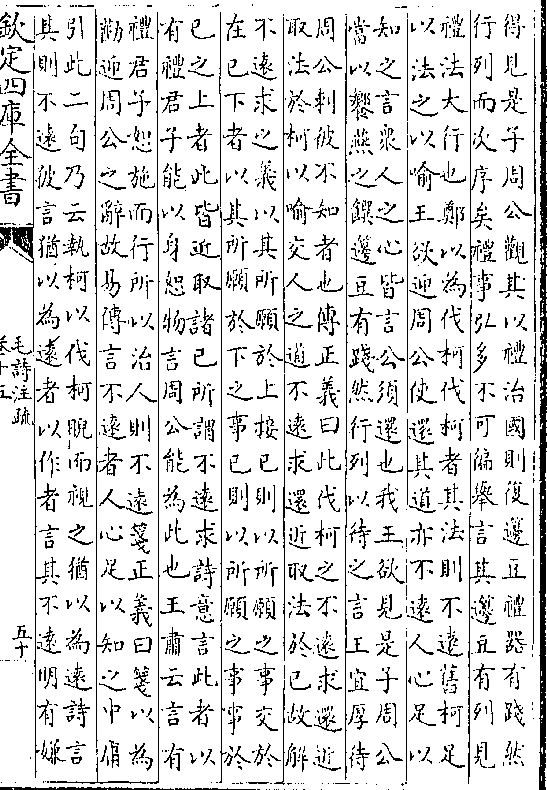 得見是子周公觀其以禮治國則復籩豆禮器有踐然
行列而次序矣禮事弘多不可徧舉言其籩豆有列見
禮法大行也鄭以為伐柯伐柯者其法則不遠舊柯足
以法之以喻王欲迎周公使還其道亦不遠人心足以
知之言衆人之心皆言公須還也我王欲見是子周公
當以饗燕之饌邊豆有踐然行列以待之言王宜厚待
周公刺彼不知者也傳正義曰此伐柯之不遠求還近
取法於柯以喻交人之道不遠求還近取法於已故解
不遠求之義以其所願於上接已則以所願之事交於
在已下者以其所願於下之事已則以所願之事事於
已之上者此皆近取諸已所謂不遠求詩意言此者以
有禮君子能以身恕物言周公能為此也王肅云言有
禮君子恕施而行所以治人則不遠箋正義曰箋以為
勸迎周公之辭故易傳言不遠者人心足以知之中庸
引此二句乃云執柯以伐柯睨而視之猶以為遠詩言
其則不遠彼言猶以為遠者以作者言其不遠明有嫌
欽定四庫全書
毛詩注疏
卷十五
五十